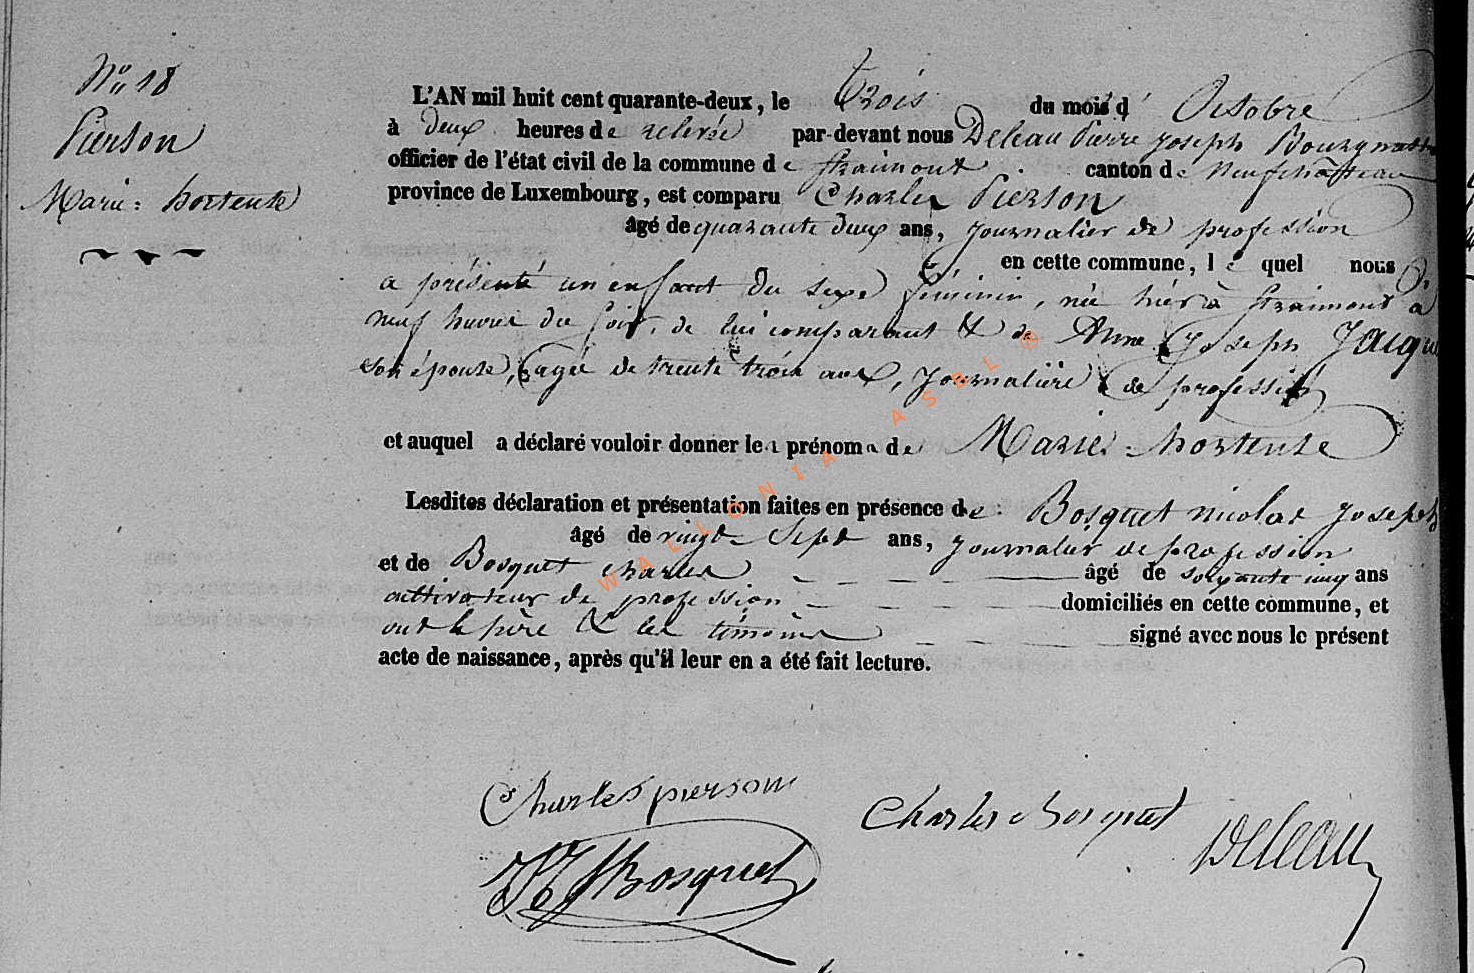 N° 18
Pierson
Marie-hortense
L'AN mil huit cent quarante-deux, le trois du mois d'Octobre
à deux heures de relevée par-devant nous Deleau Pierre Joseph Bourgmestre
officier de l'état civil de la commune de Straimont canton de Neufchâteau
province de Luxembourg, est comparu Charles Pierson
âgé de quarante deux ans, journalier de profession
en cette commune, lequel nous
a présenté un enfant du sexe féminin, née hier à Straimont à
neuf heures du soir, de lui comparant & de Anne Joseph
son épouse, agée de trente trois ans, journalière de profession
et auquel a déclaré vouloir donner les prénoms de Marie-hortense
Lesdites déclaration et présentation faites en présence de Bosquet nicolas Joseph
âgé de vingt-sept ans, journalier de profession
et de Bosquet charles âgé de soixante cinq ans
cultivateur de profession domiciliés en cette commune, et
ont le père & les témoins signé avec nous le présent
acte de naissance, après qu'il leur en a été fait lecture.
Charles pierson
Charles Bosquet
Deleau
NJBosquet
WALLONIA ASBL ©